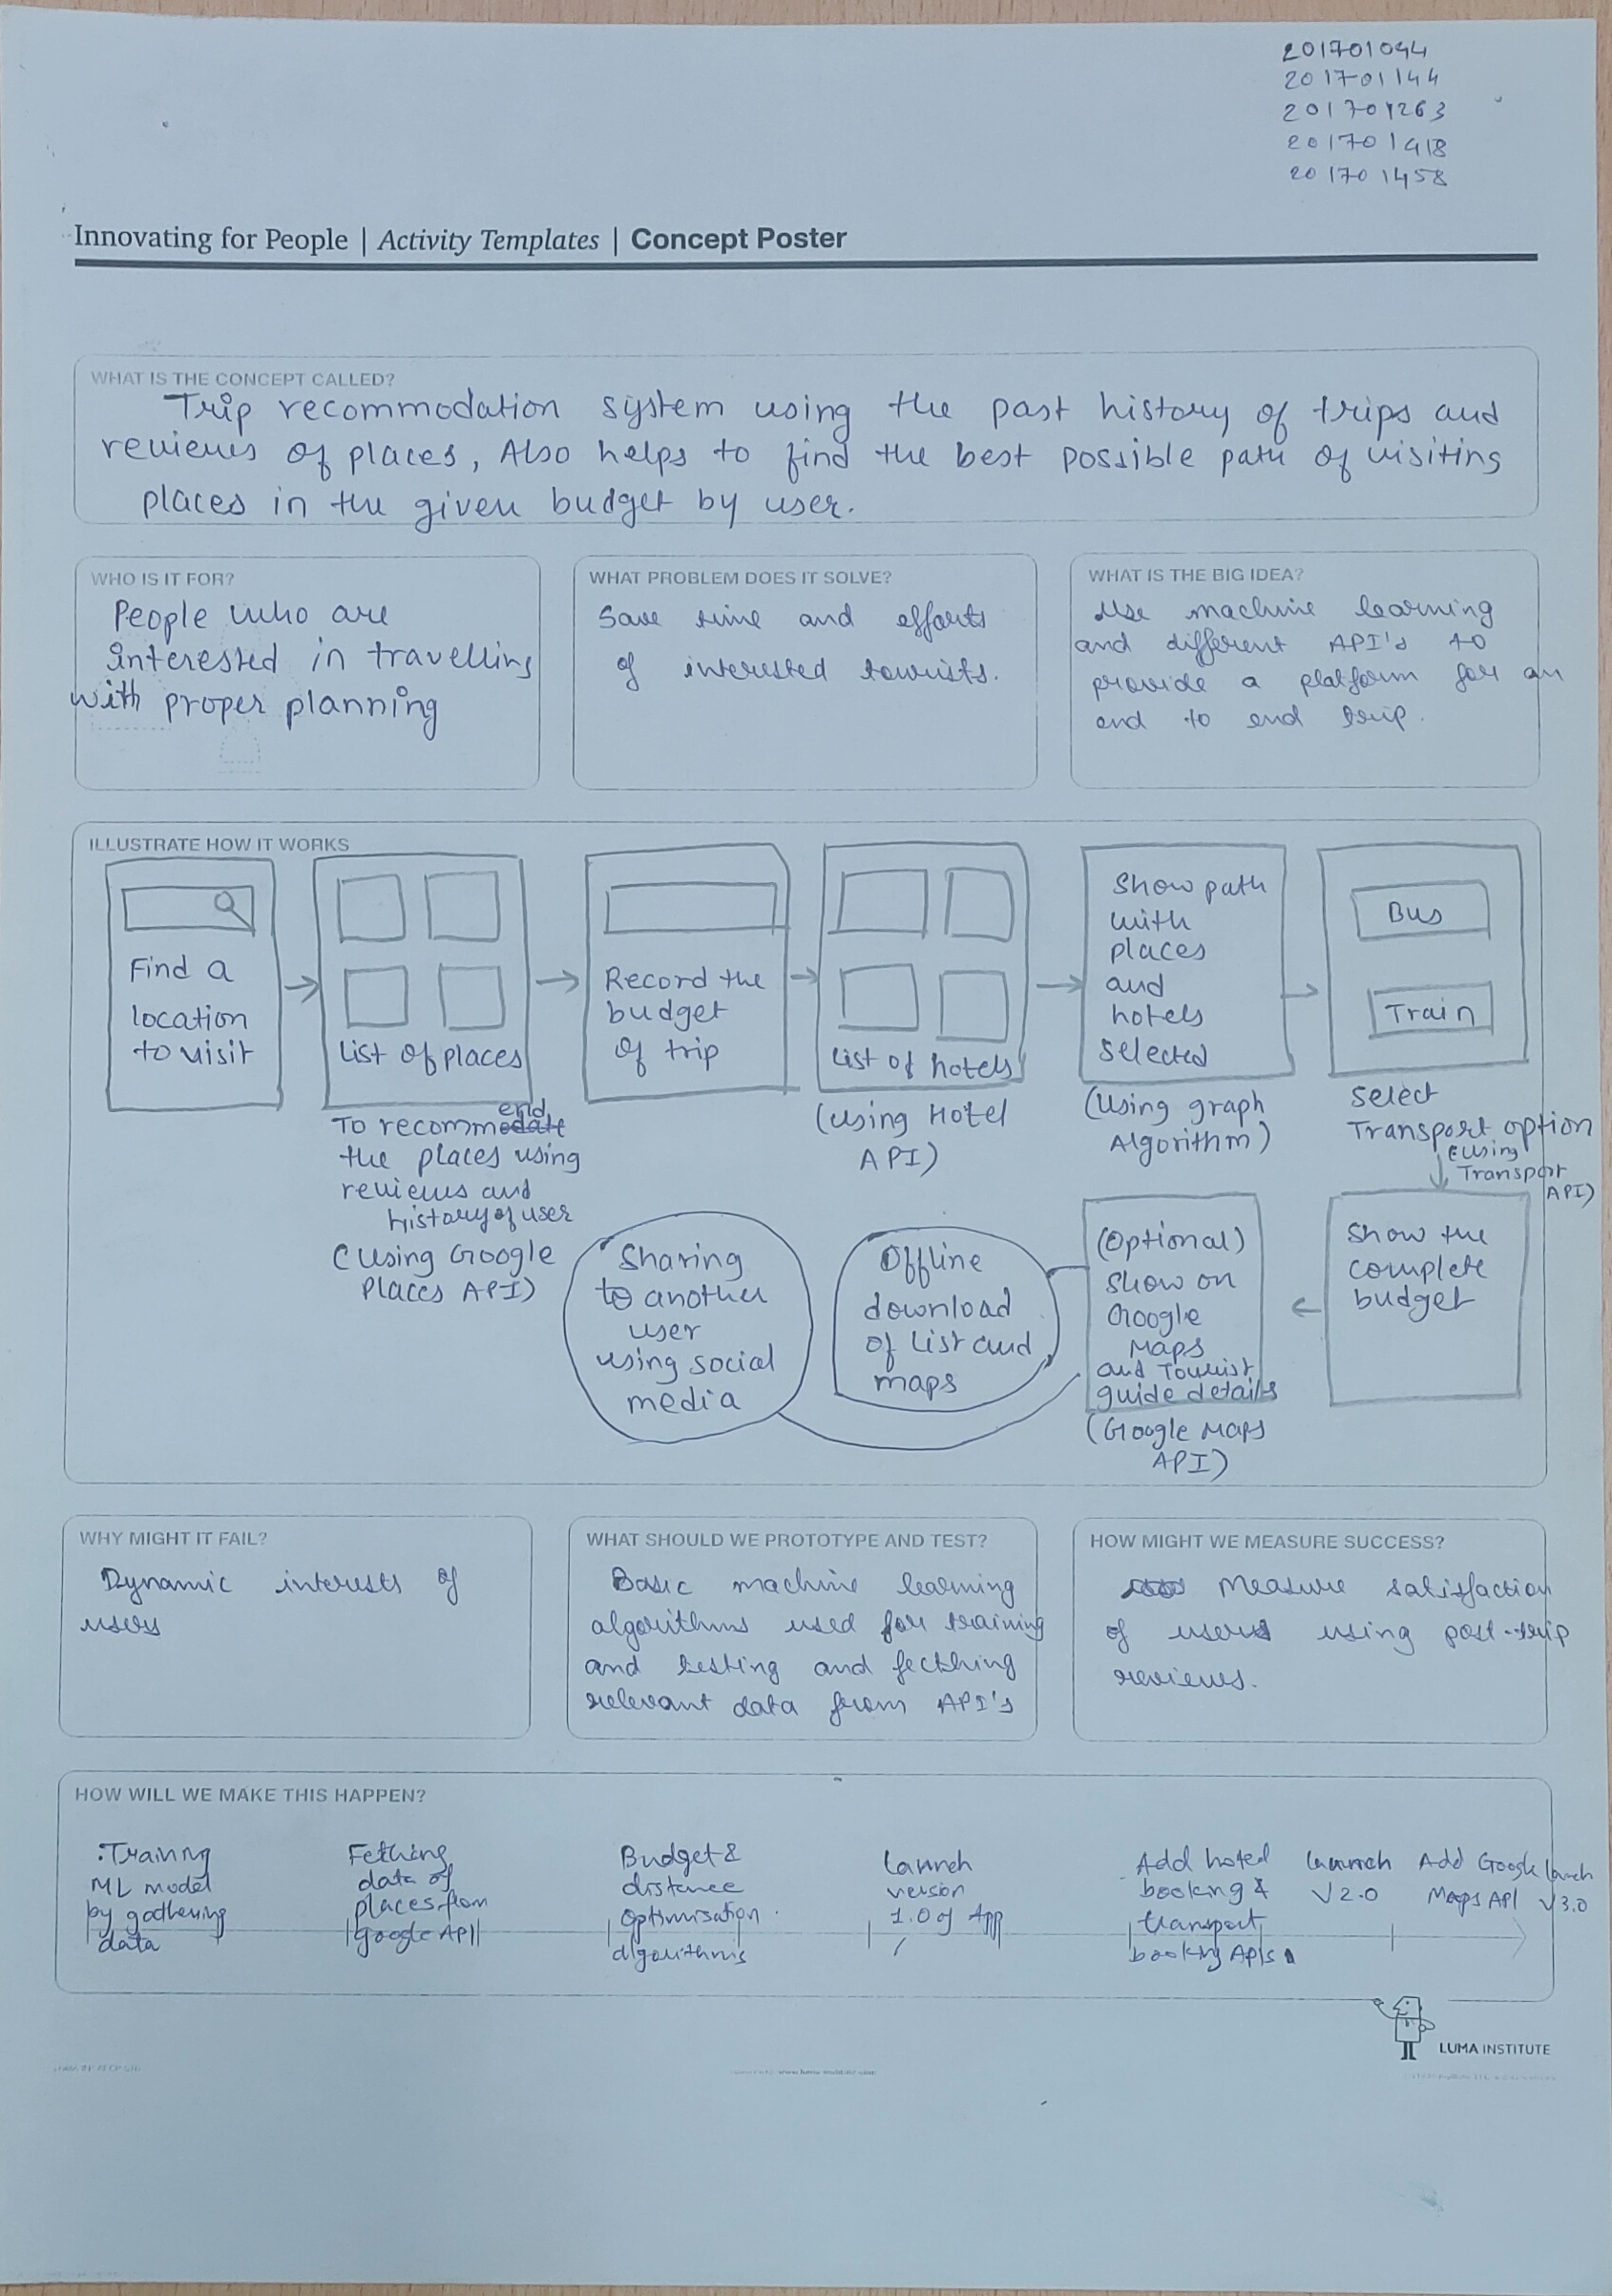 201701094
201701144
201701263
201701418
201701458
Innovating for People | Activity Templates | Concept Poster
WHAT IS THE CONCEPT CALLED?
Trip recommodation system using the past history of trips and
reviews of places, Also helps to find the best possible path of visiting
places in the given budget by user.
WHO IS IT FOR?
People who are
interested in travelling
with proper planning
WHAT PROBLEM DOES IT SOLVE?
Save time and efforts
of interested tourists.
WHAT IS THE BIG IDEA?
Use machine learning
and different API's to
provide a platform for an
end to end trip.
ILLUSTRATE HOW IT WORKS
Find a
location
to visit
List of places
To recommend
the places using
reviews and
history of user
(Using Google
Places API)
Record the
budget
of trip
List of hotels
(Using Hotel
API)
Show path
with
places
and
hotels
selected
(Using graph
Algorithm)
Bus
Train
Select
Transport option
(using
Transport
API)
Show the
complete
budget
(Optional)
Show on
Google
Maps
and Tourist
guide details
(Google Maps
API)
Offline
download
of List and
maps
Sharing
to another
user
using social
media
WHY MIGHT IT FAIL?
Dynamic interests of
users
WHAT SHOULD WE PROTOTYPE AND TEST?
Basic machine learning
algorithms used for training
and testing and fecthing
relevant data from API's
HOW MIGHT WE MEASURE SUCCESS?
Measure satisfaction
of users using post-trip
reviews.
HOW WILL WE MAKE THIS HAPPEN?
Trainng
ML model
by gathering
data
Fething
data of
places from
google API
Budget &
distance
Optimisation
algorithms
Launch
version
1.0 of App
Add hotel
booking &
transport
booking APIs
launch
V2.0
Add Google
Maps API
launch
V3.0
LUMA INSTITUTE